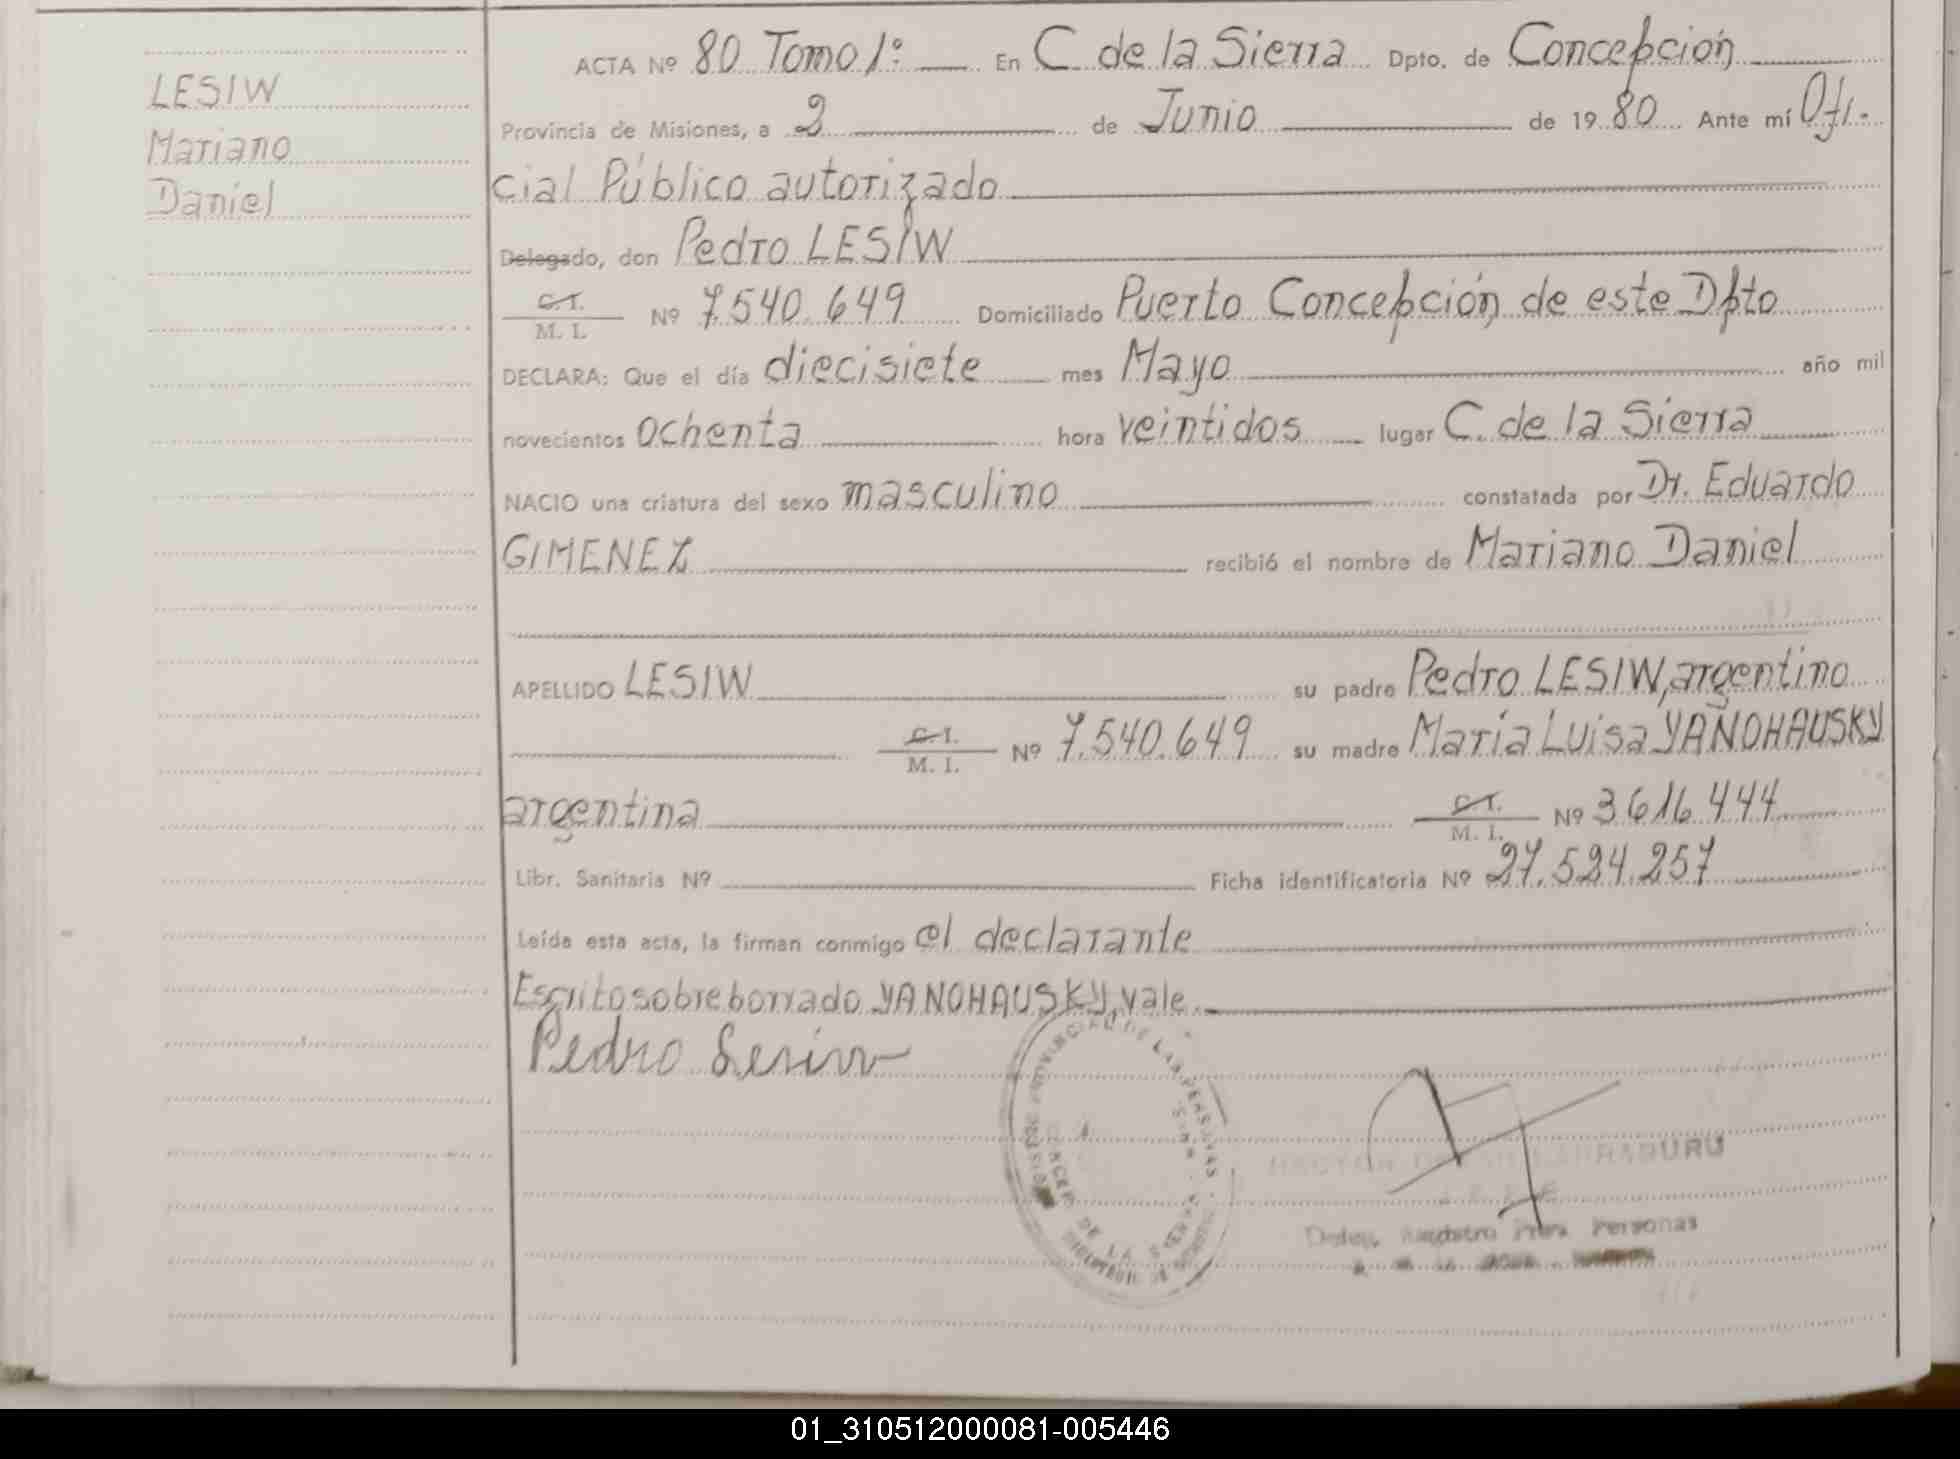 LESIW
Mariano
Daniel
ACTA Nº 80 Tomo 1º En C. de la Sierra Dpto. de Concepción
Provincia de Misiones, a 2 de Junio de 1980 Ante mí Ofi-
cial Público autorizado
Delegado, don Pedro LESIW
C. I.
M. I. Nº 7.540.649 Domiciliado Puerto Concepción, de este Dpto
DECLARA: Que el día diecisiete mes Mayo año mil
novecientos ochenta hora veintidos lugar C. de la Sierra
NACIO una criatura del sexo masculino constatada por Dr. Eduardo
GIMENEZ recibió el nombre de Mariano Daniel
APELLIDO LESIW su padre Pedro LESIW, argentino
C. I.
M. I. Nº 7.540.649 su madre María Luisa YAÑOHAUSKY
argentina C. I.
M. I. Nº 3.616.444
Libr. Sanitaria Nº Ficha identificatoria Nº 27.524.257
Leída esta acta, la firman conmigo el declarante
Escrito sobre borrado YANOHAUSKY, vale
Pedro Lesiw
PROVINCIAL DE LAS PERSONAS
DE LA SIERRA
Personas
01_310512000081-005446